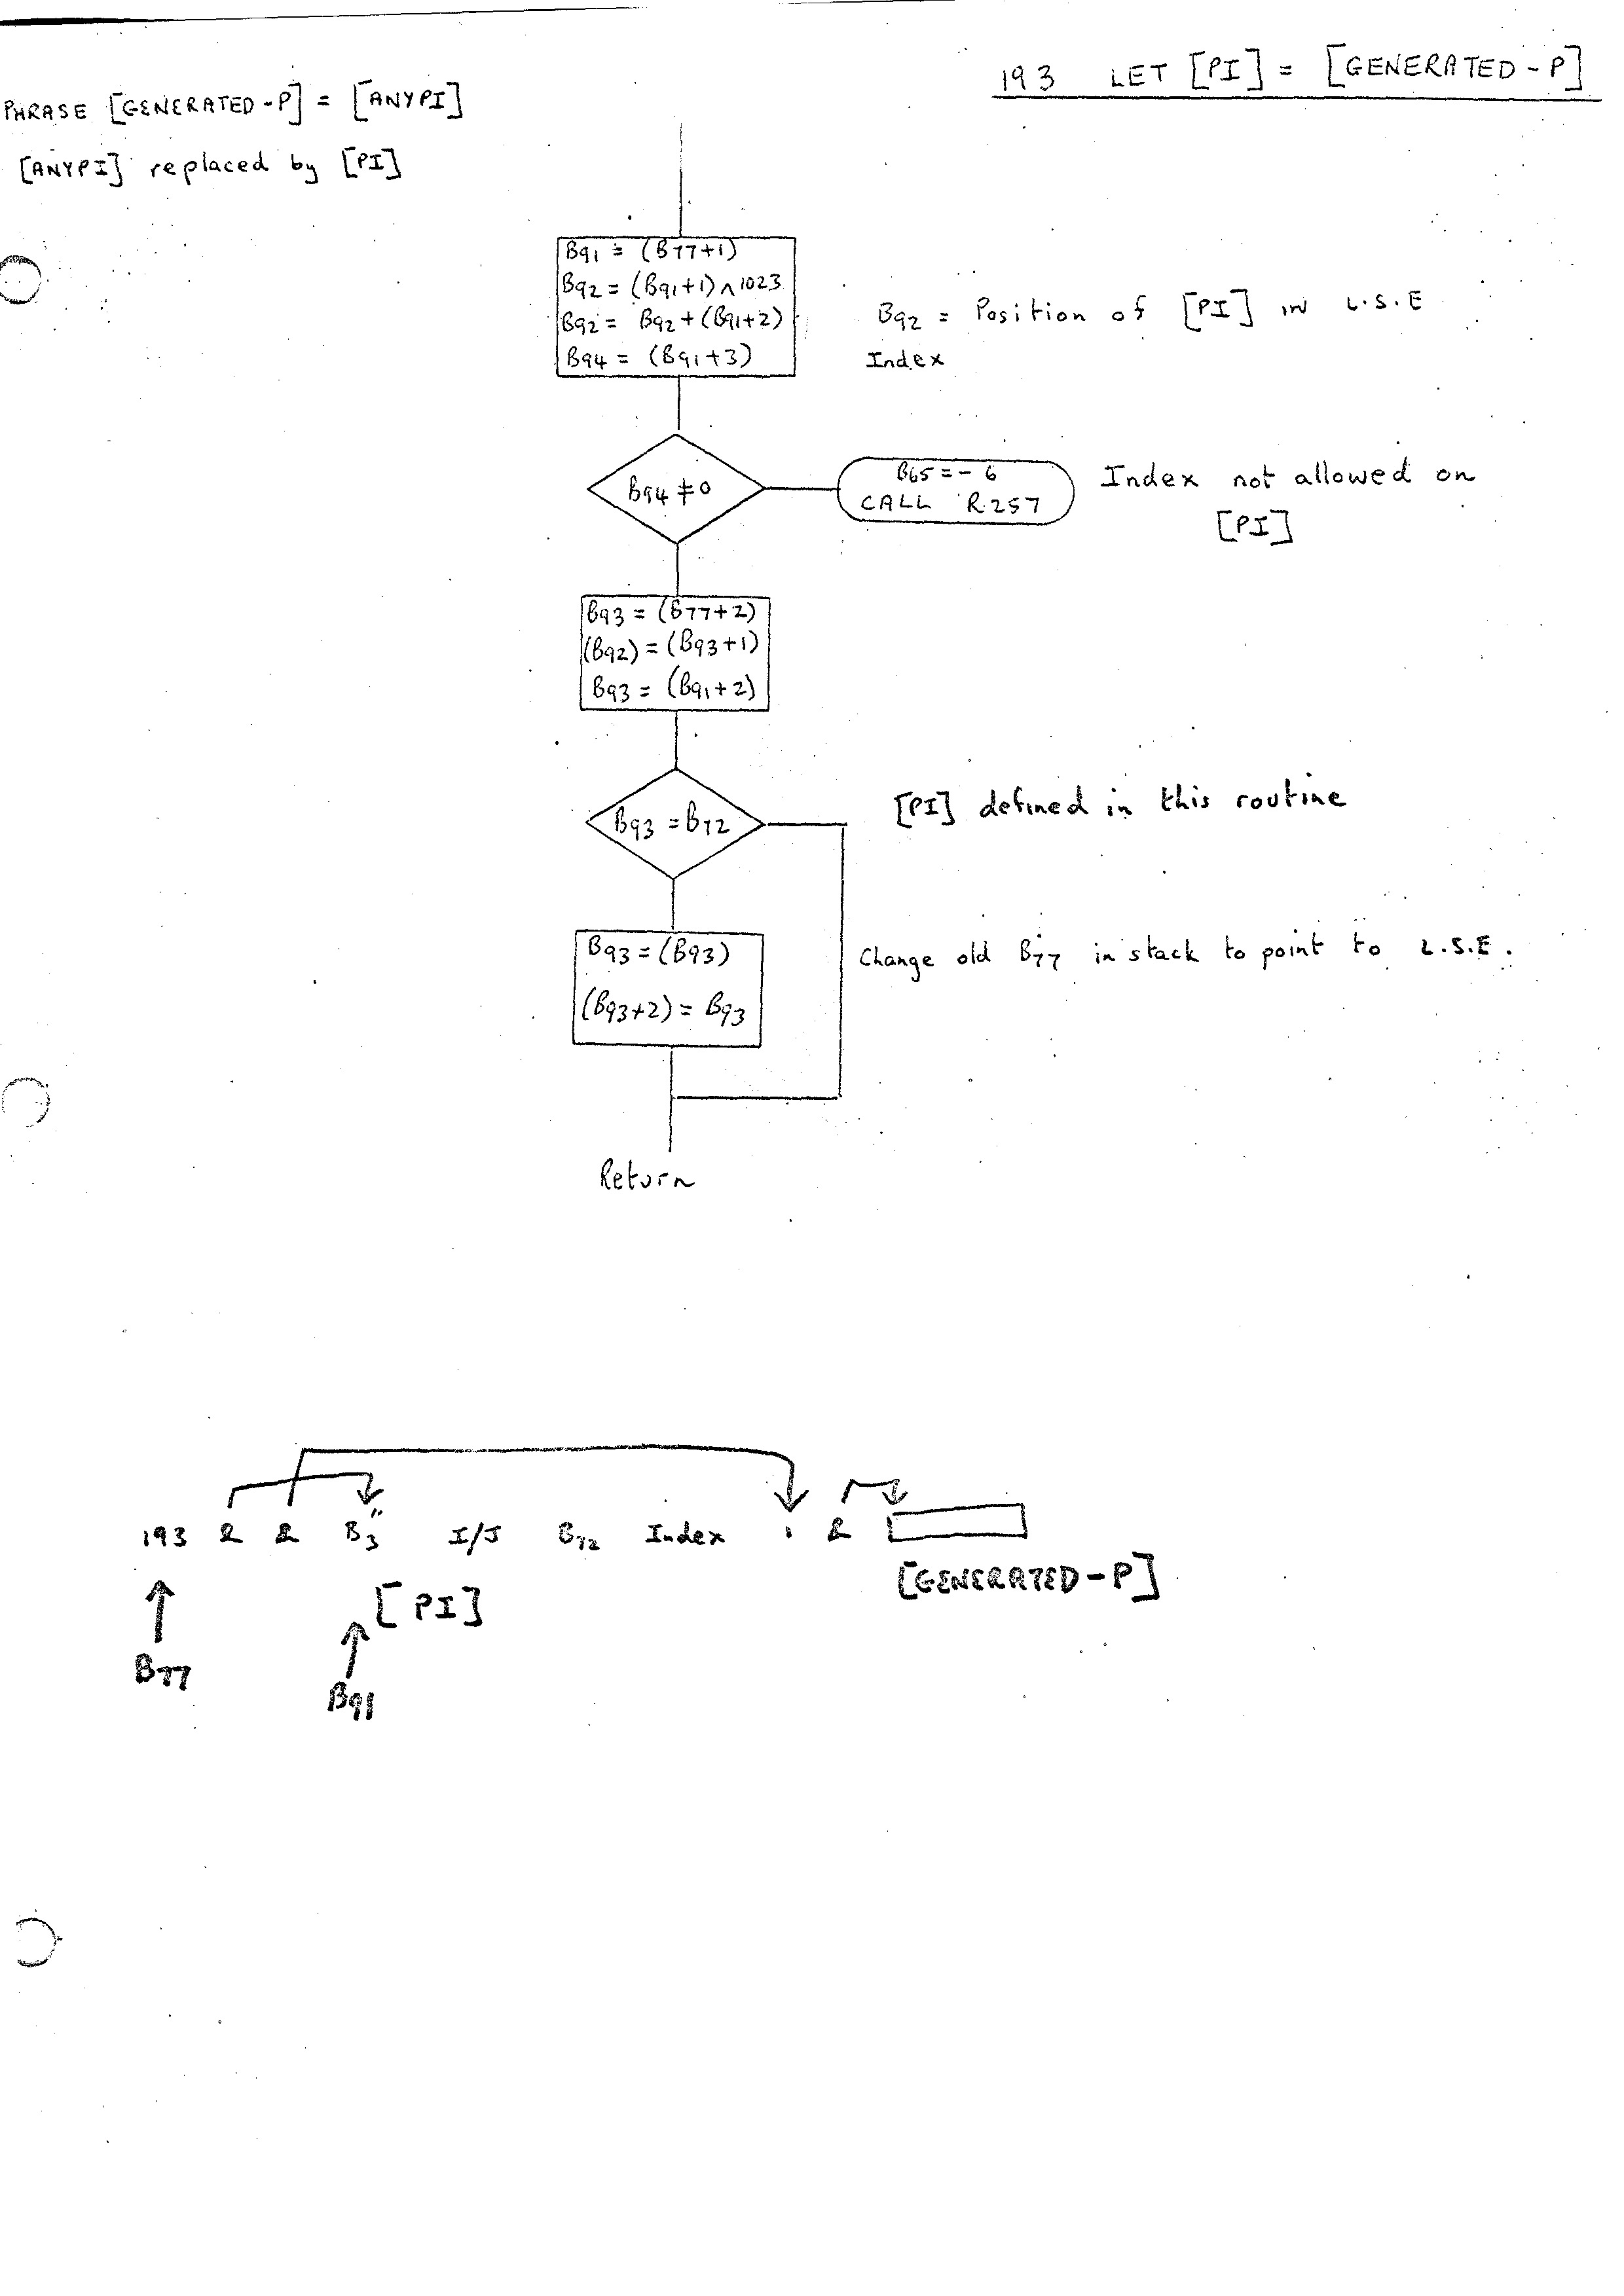 193 LET [PI] = [GENERATED-P]
PHRASE [GENERATED-P] = [ANYPI]
[ANYPI] replaced by [PI]
B91 = (B77+1)
B92 = (B91+1)∧1023
B92 = B92+(B91+2)
B94 = (B91+3)
B92 = Position of [PI] in L.S.E
Index
B94 ≠ 0
B65 = -6
CALL R257
Index not allowed on
[PI]
B93 = (B77+2)
(B92) = (B93+1)
B93 = (B91+2)
B93 = B72
[PI] defined in this routine
B93 = (B93)
(B93+2) = B93
Change old B77 in stack to point to L.S.E.
Return
193 & & B3" I/J B72 Index 1 &
[PI]
[GENERATED-P]
B77
B91